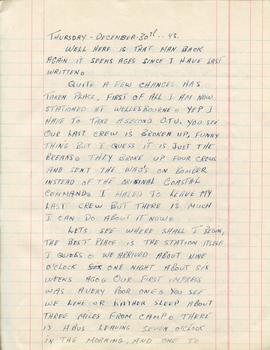 THURSDAY - DECEMBER - 30TH .. 43.
WELL HERE IS THAT MAN BACK
AGAIN. IT SEEMS AGES SINCE I HAVE LAST
WRITTEN.
QUITE A FEW CHANGES HAS
TAKEN PLACE, FIRST OF ALL I AM NOW
STATIONED AT WELLESBOURNE. YEP I
HAVE TO TAKE A SECOND O.T.U. YOU SEE
OUR LAST CREW IS BROKEN UP, FUNNY
THING BUT I GUESS IT IS JUST THE
BREAKS. THEY BROKE UP FOUR CREWS
AND SENT THE ON BOMBER
INSTEAD OF THE NOMINAL COASTAL
COMMAND. I HATED TO LEAVE MY
LAST CREW BUT THERE IS MUCH
I CAN DO ABOUT IT NOW.
LETS SEE WHERE SHALL I BEGIN,
THE BEST PLACE IS THE STATION ITSELF
I GUESS. WE ARRIVED ABOUT NINE
O'CLOCK ONE NIGHT ABOUT SIX
WEEKS AGO. OUR FIRST IMPRESS
WAS A VERY POOR ONE. YOU SEE
WE LIVE OR RATHER SLEEP ABOUT
THREE MILES FROM CAMP. THERE
IS A BUS LEAVING SEVEN O'CLOCK
IN THE MORNING, AND ONE TO